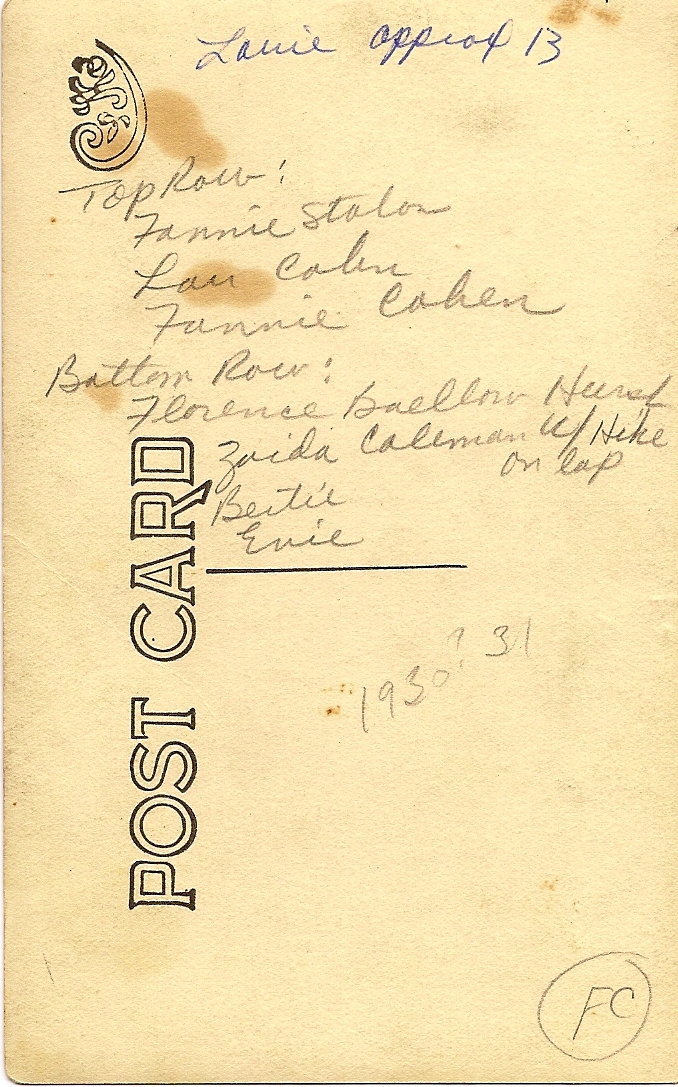 Louie approx 13
Top Row:
Fannie Stolov
Lou Cohen
Fannie Cohen
Bottom Row:
Florence Baellow Hurst
Zaida Coleman w/ Hike
on lap
Bertie
Evie
POST CARD
1930? 31
FC